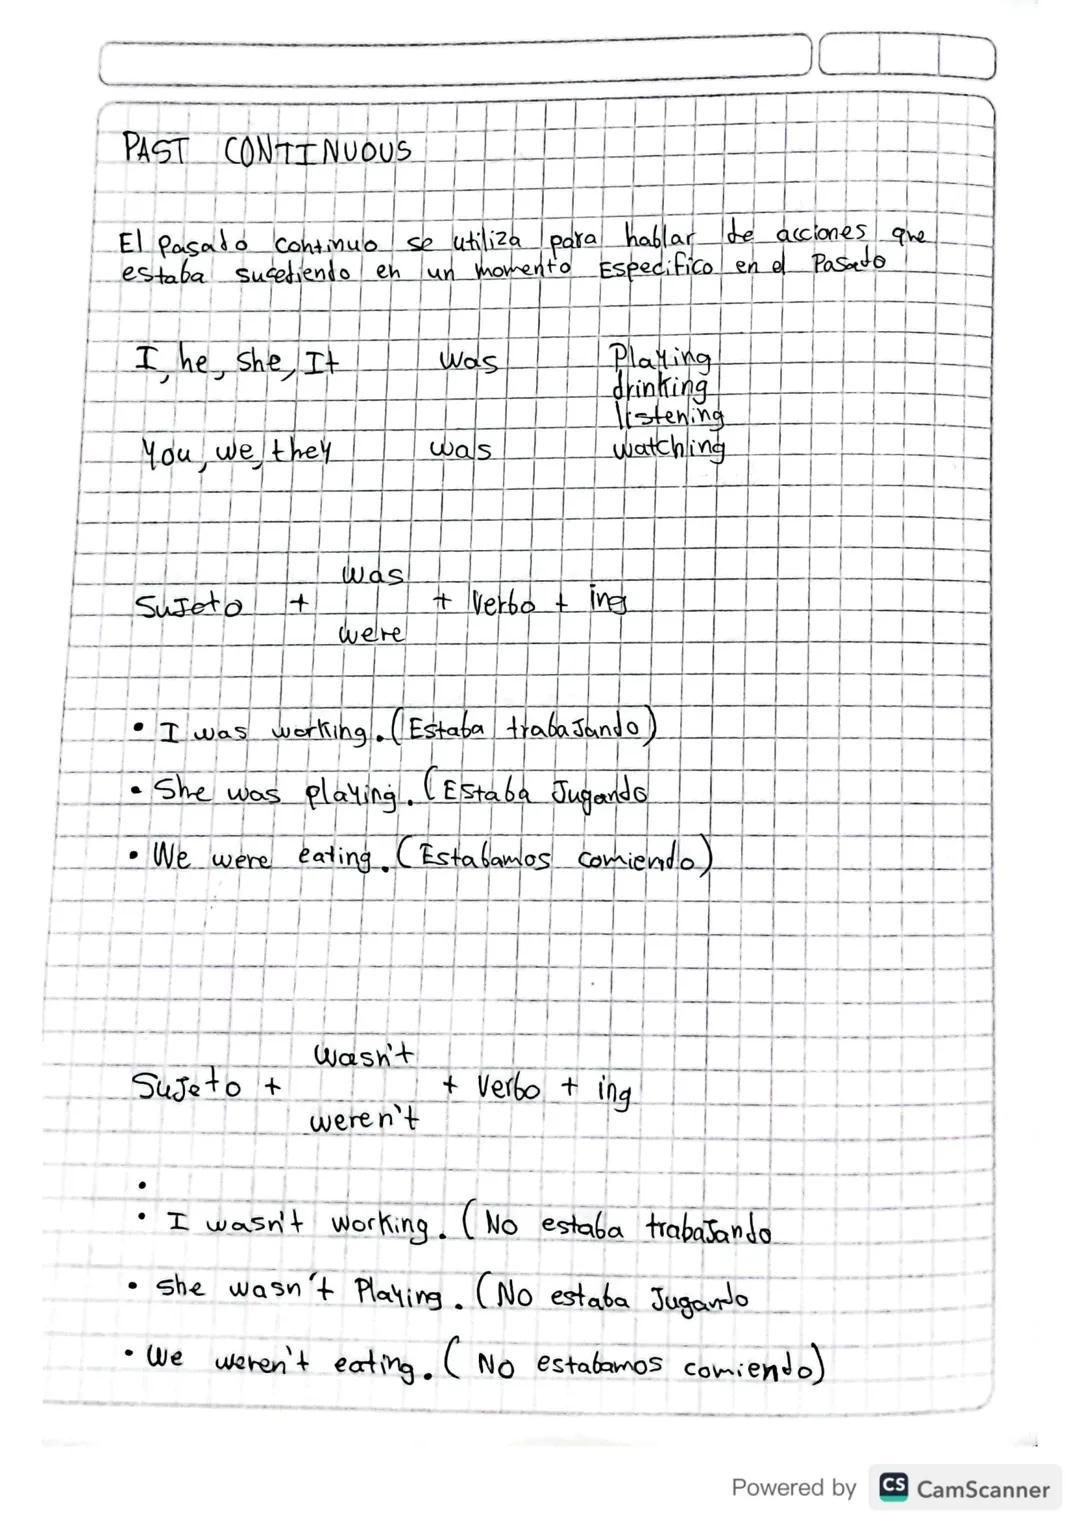 PAST CONTINUOUS
El pasado continuo se utiliza para hablar de acciones que
estaba sucediendo en un momento Especifico en el Pasado
I, he, she, It was Playing
drinking
listening
You, we, they was watching
was
Sujeto + + Verbo + ing
were
• I was working. (Estaba trabajando)
• She was playing. (Estaba Jugando
• We were eating. (Estabamos comiendo)
wasn't
Sujeto + + Verbo + ing
weren't
•
• I wasn't working. (No estaba trabajando
• she wasn't Playing. (No estaba Jugando
• We weren't eating. (No estabamos comiendo)
Powered by CS CamScanner